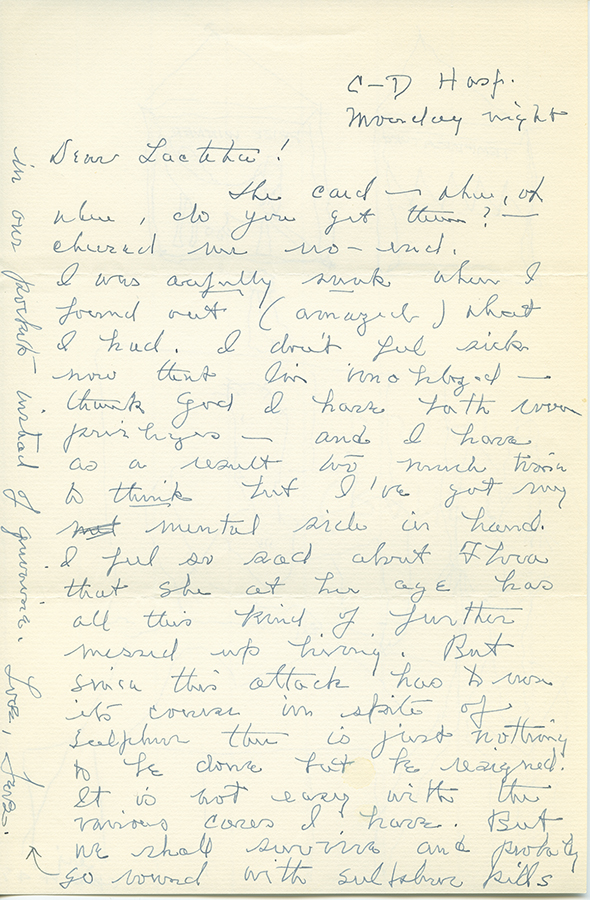 C-D Hosp.
Monday night
Dear Laetitia!
The card — where, oh
where, do you get them? —
cheered me no-end.
I was awfully sunk when I
found out (amazed) what
I had. I don't feel sick
now that I'm
thank God I have bath room
privileges — and I have
as a result too much time
to think but I've got my
mental side in hand.
I feel so sad about Flora
that she at her age has
all this kind of further
messed up living. But
since this attack has to run
its course in spite of
sulphur there is just nothing
to be done but be resigned.
It is not easy with the
various cares I have. But
we shall survive and probably
go round with sulphur pills
in our pockets instead of
Love,